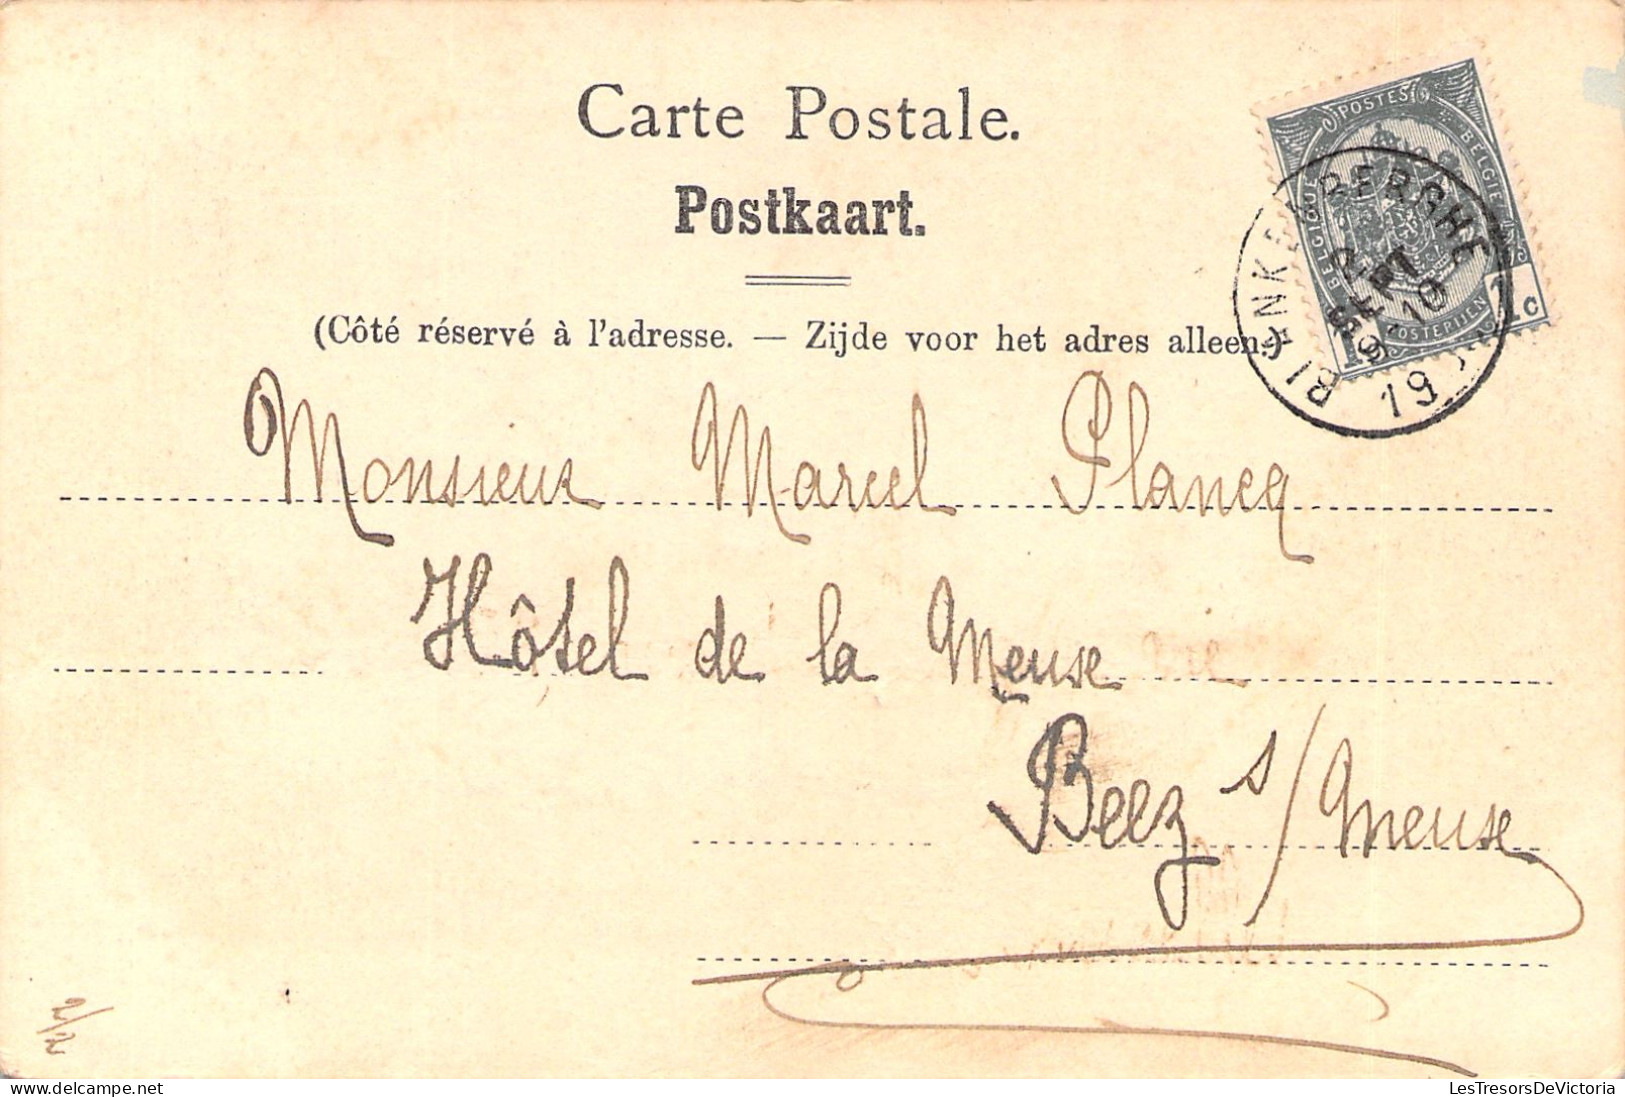 Carte Postale.
Postkaart.
(Côté réservé à l'adresse. — Zijde voor het adres alleen.)
POSTES
BELGIQUE
BELGIË
POSTERIJEN
1c
BLANKENBERGHE
10
19
Monsieur Marcel Plancq
Hôtel de la Meuse
Beez s/Meuse
2/2
LesTresorsDeVictoria